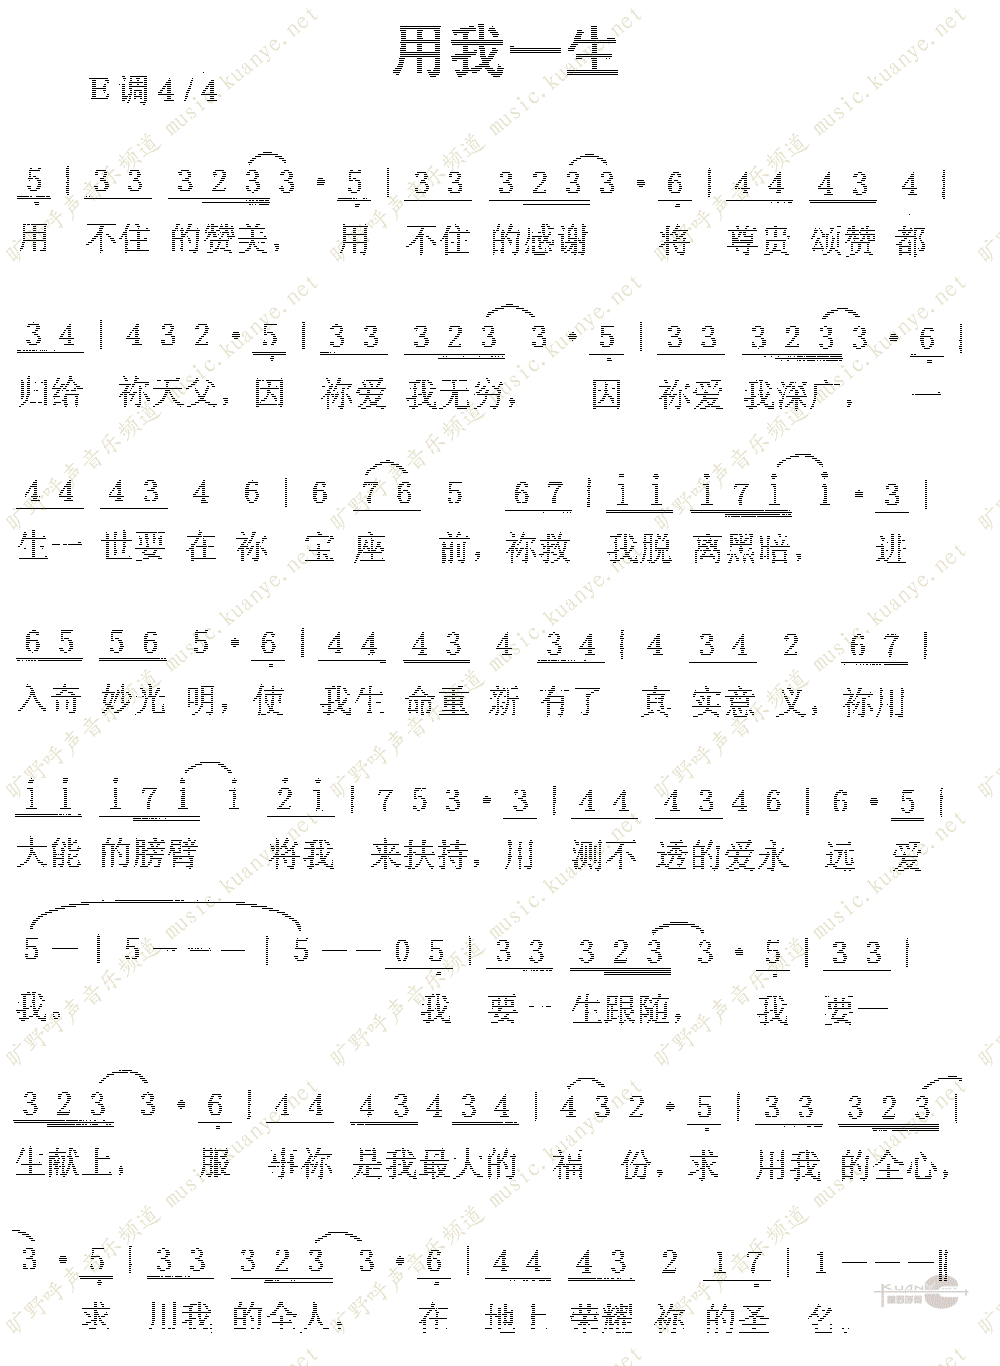 用我一生
E调4/4
5 | 3 3 3 2 3 3 · 5 | 3 3 3 2 3 3 · 6 | 4 4 4 3 4 |
用 不住 的赞美， 用 不住 的感谢 将 尊贵 颂赞 都
3 4 | 4 3 2 · 5 | 3 3 3 2 3 3 · 5 | 3 3 3 2 3 3 · 6 |
归给 祢天父，因 祢爱 我无穷， 因 祢爱 我深广， 一
4 4 4 3 4 6 | 6 7 6 5 6 7 | i i i 7 i i · 3 |
生一 世要 在 祢 宝 座 前，祢救 我脱 离黑暗， 进
6 5 5 6 5 · 6 | 4 4 4 3 4 3 4 | 4 3 4 2 6 7 |
入奇 妙光 明，使 我生 命重 新 有了 真 实意 义，祢用
i i i 7 i i 2 i | 7 5 3 · 3 | 4 4 4 3 4 6 | 6 · 5 |
大能 的膀臂 将我 来扶持，用 测不 透的爱永 远 爱
5 — | 5 — — — | 5 — — 0 5 | 3 3 3 2 3 3 · 5 | 3 3 |
我。 我 要一 生跟随， 我 要一
3 2 3 3 · 6 | 4 4 4 3 4 3 4 | 4 3 2 · 5 | 3 3 3 2 3 |
生献上， 服 事祢 是我最大的 福 份，求 用我 的全心，
3 · 5 | 3 3 3 2 3 3 · 6 | 4 4 4 3 2 1 7 | 1 — — — ||
求 用我 的全人， 在 地上 荣耀 祢 的圣 名.
KUAN
旷野呼声
旷野呼声音乐频道 music.kuanye.net